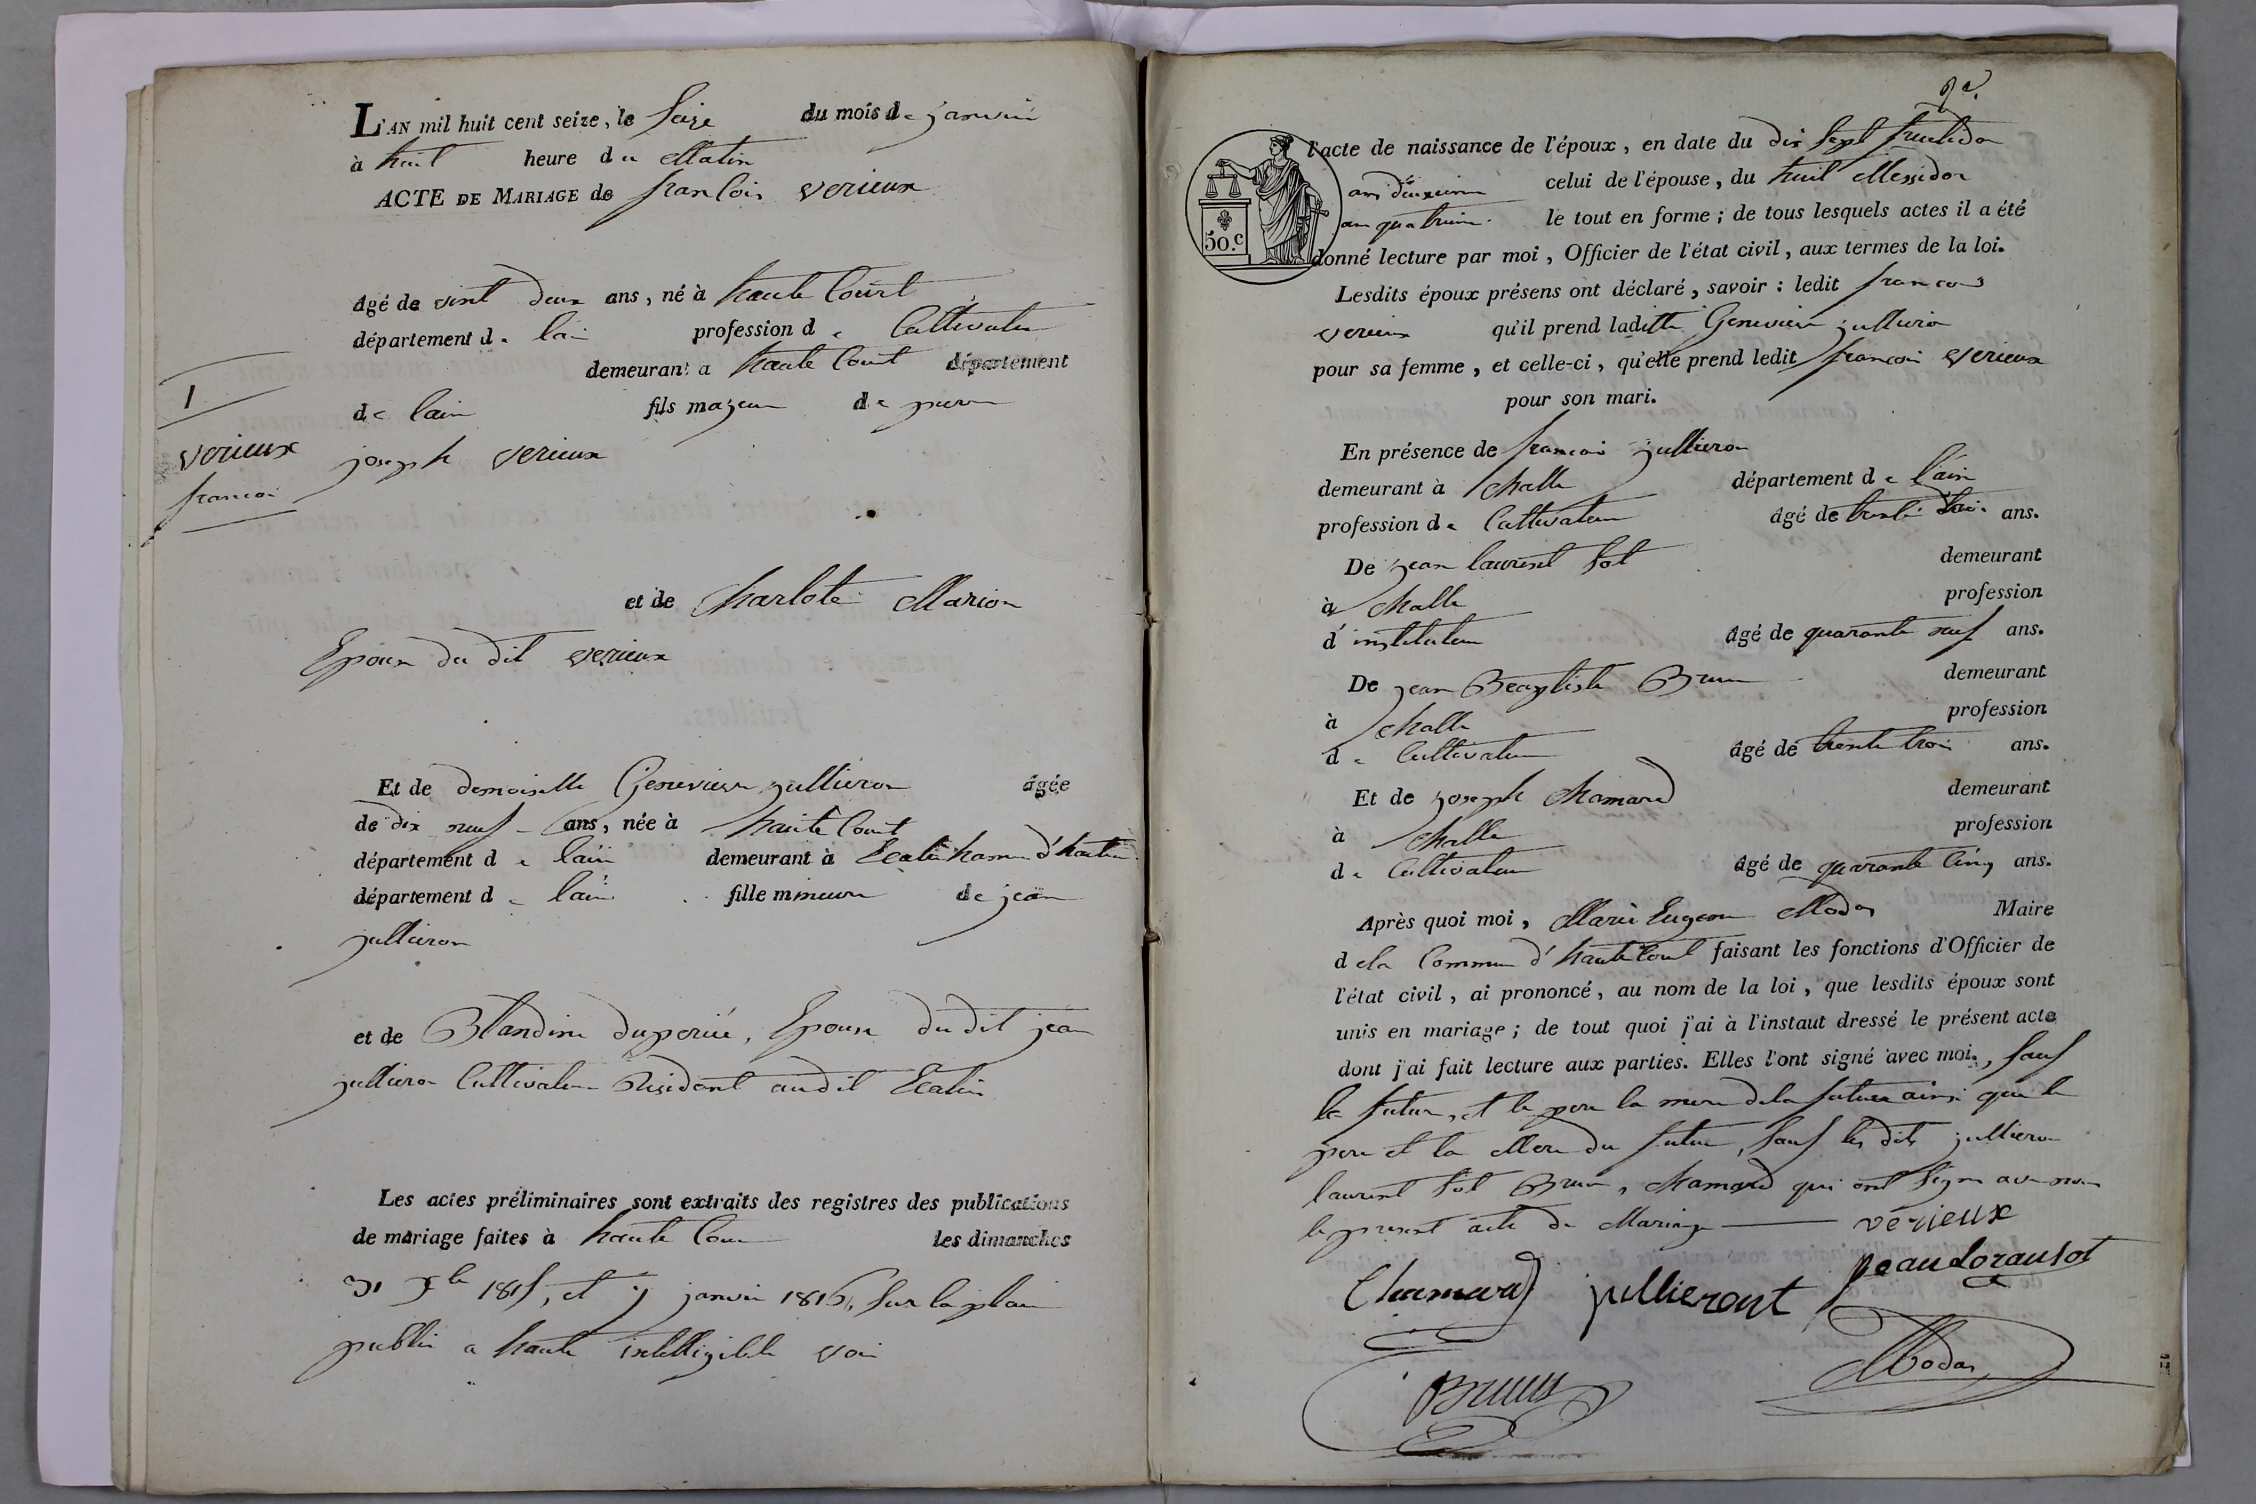 L'AN mil huit cent seize, le Seize du mois de janvier
à huit heure du Matin
ACTE DE MARIAGE de francois verieux
âgé de vint deux ans, né à haute Court
département de lain profession de Cultivateur
demeurant a haute Court département
de lain fils majeur de pierre
joseph verieux
1
verieux
francois
et de Charlote Marion
Epouse du dit verieux
Et de demoiselle Genevieve jullieron âgée
de dix neuf ans, née à haute Court
département de lain demeurant à
département de lain fille mineure de jean
jullieron
et de Blandine duporié, Epouse du dit jean
jullieron Cultivateur Résident audit
Les actes préliminaires sont extraits des registres des publications
de mariage faites à haute Cour les dimanches
31 Xbre 1815, et 7 janvier 1816, sur la place
public a haute intelligible voix
l'acte de naissance de l'époux, en date du dix sept fructidor
an deuxieme celui de l'épouse, du huit Messidor
an quatrieme le tout en forme ; de tous lesquels actes il a été
50.c
donné lecture par moi, Officier de l'état civil, aux termes de la loi.
Lesdits époux présens ont déclaré, savoir : ledit francois
verieux qu'il prend laditte Genevieve jullieron
pour sa femme, et celle-ci, qu'elle prend ledit francois verieux
pour son mari.
En présence de francois jullieron
demeurant à Challe département de l'ain
profession de Cultivateur âgé de trente trois ans.
De jean laurent sot demeurant
à Challe profession
d'instituteur âgé de quarante neuf ans.
De jean Beaptiste Brun demeurant
à Challe profession
de Cultivateur âgé de trente trois ans.
Et de joseph Chamard demeurant
à Challe profession
de Cultivateur âgé de quarante Cinq ans.
Après quoi moi, Marie Eugene Modas Maire
de la Commune d'hautecour faisant les fonctions d'Officier de
l'état civil, ai prononcé, au nom de la loi, que lesdits époux sont
unis en mariage ; de tout quoi j'ai à l'instaut dressé le présent acte
dont j'ai fait lecture aux parties. Elles l'ont signé avec moi., sauf
la future, et le pere la mere de la future ainsi que le
pere et la Mere du futur, sauf les dits jullieron
laurent sot Brun, Chamard qui ont signe avec nous
le present acte de Mariage vérieux
Chamard jullieront jeanloransot
Brun Modas